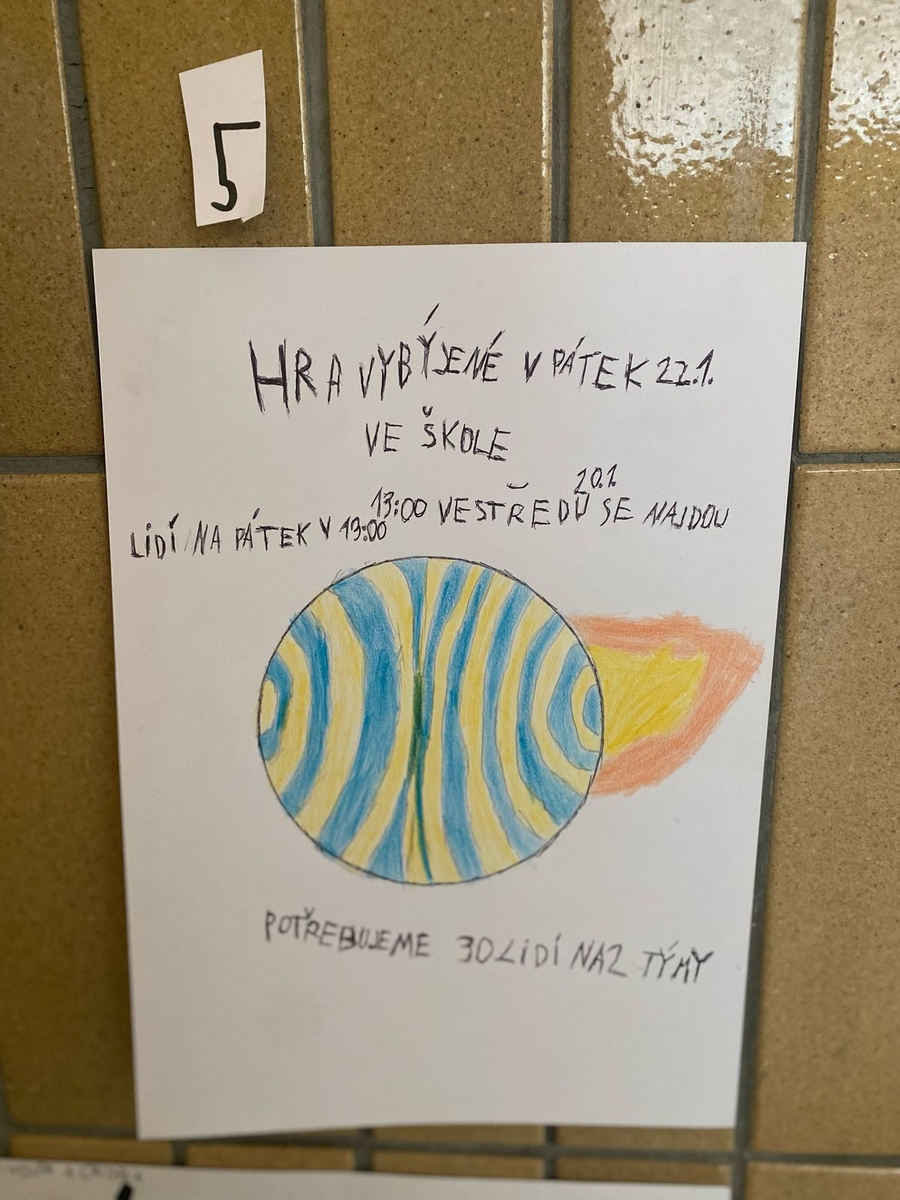 5
HRA VYBÝJENÉ V PÁTEK 22.1.
VE ŠKOLE
13:00 VE STŘEDU 20.1 SE NAJDOU
LIDÍ NA PÁTEK V 13:00
POTŘEBUJEME 30 LIDÍ NA 2 TÝMY